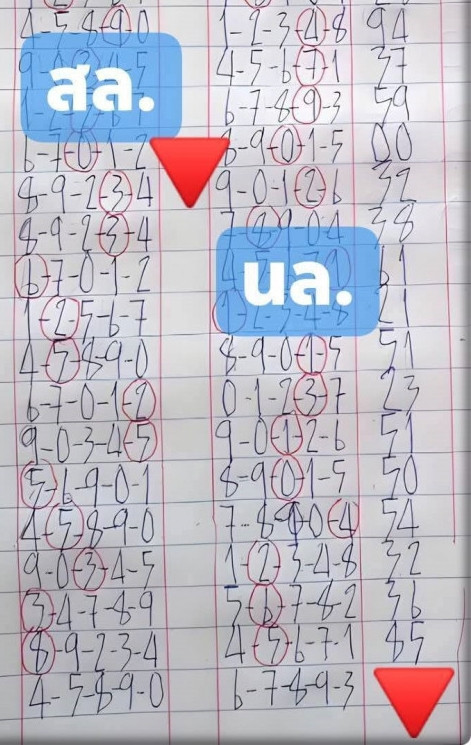 4-5-8-9-0 1-2-3-4-8 94
4-5-6-7-1 37
สล.
6-7-8-9-3 59
6-7-0-1-2 8-9-0-1-5 00
8-9-2-3-4 9-0-1-2-6 32
8-9-2-3-4 38
6-7-0-1-2 61
นล.
1-2-5-6-7 21
4-5-8-9-0 8-9-0-1-5 51
6-7-0-1-2 0-1-2-3-7 23
9-0-3-4-5 9-0-1-2-6 51
5-6-9-0-1 8-9-0-1-5 50
4-5-8-9-0 7-8-9-0-4 54
9-0-3-4-5 1-2-3-4-8 32
3-4-7-8-9 5-6-7-8-2 36
8-9-2-3-4 4-5-6-7-1 85
4-5-8-9-0 6-7-8-9-3